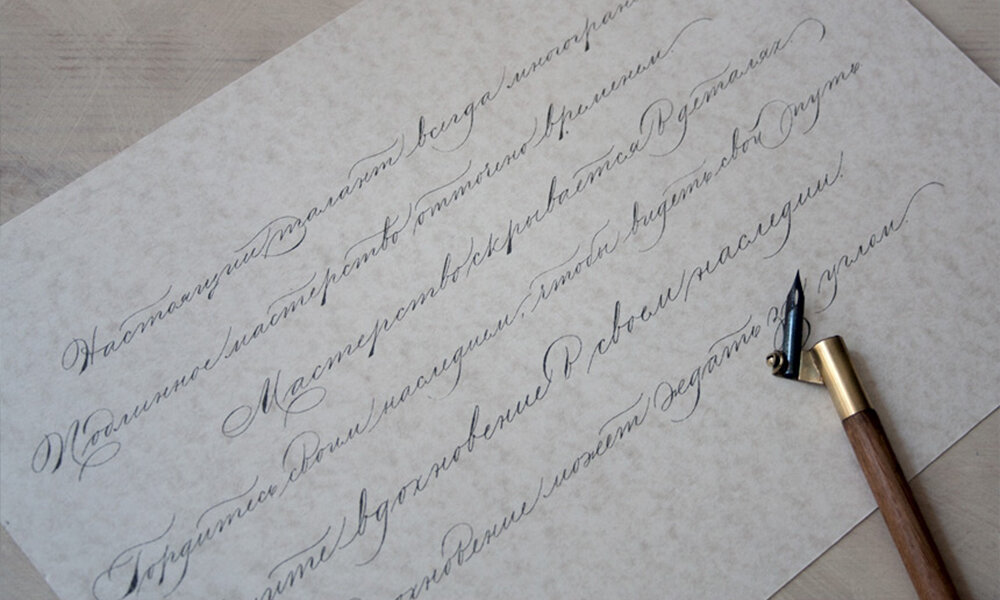 Настоящий талант всегда многогран
Подлинное мастерство отточено временем.
Мастерство скрывается в деталях
Гордитесь своим наследием, чтобы видеть свой путь
ите вдохновение в своем наследии.
охновение может ждать за углом.